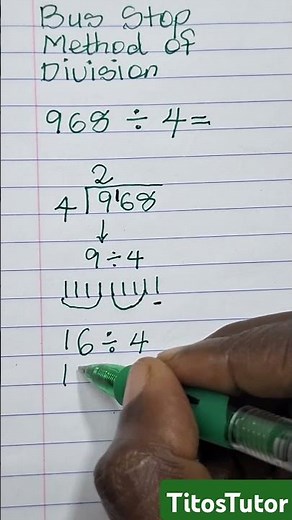 Bus Stop
Method of
Division
968 ÷ 4 =
2
4 9¹68
↓
9 ÷ 4
16 ÷ 4
1
TitosTutor